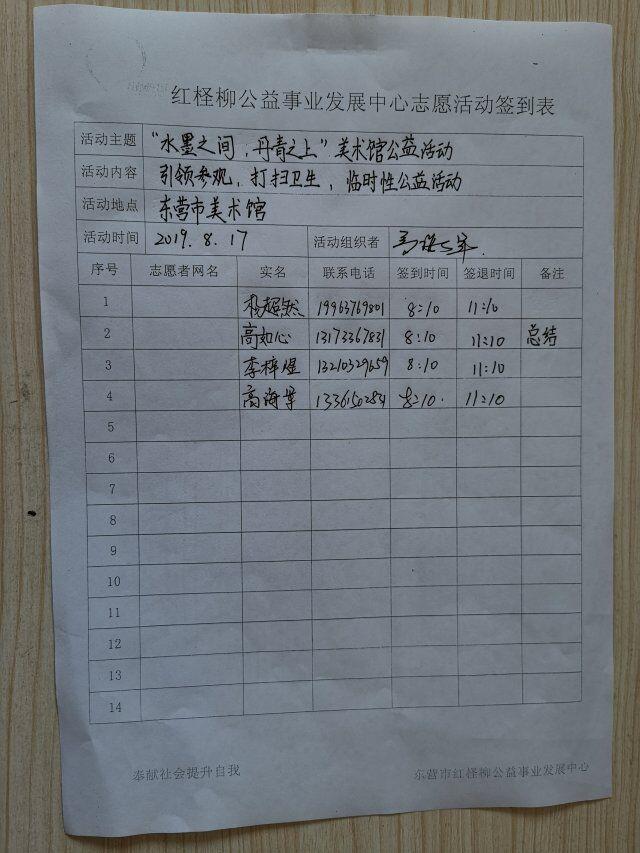 红柽柳公益事业发展中心志愿活动签到表
活动主题 “水墨之间，丹青之上”美术馆公益活动
活动内容 引领参观，打扫卫生，临时性公益活动
活动地点 东营市美术馆
活动时间 2019.8.17 活动组织者
序号 志愿者网名 实名 联系电话 签到时间 签退时间 备注
1 杨超然 19963769801 8:10 11:10
2 高如心 13173367831 8:10 11:10 总结
3 李梓煜 13210329659 8:10 11:10
4 高海 13361502831 8:10. 11:10
5
6
7
8
9
10
11
12
13
14
奉献社会提升自我 东营市红柽柳公益事业发展中心